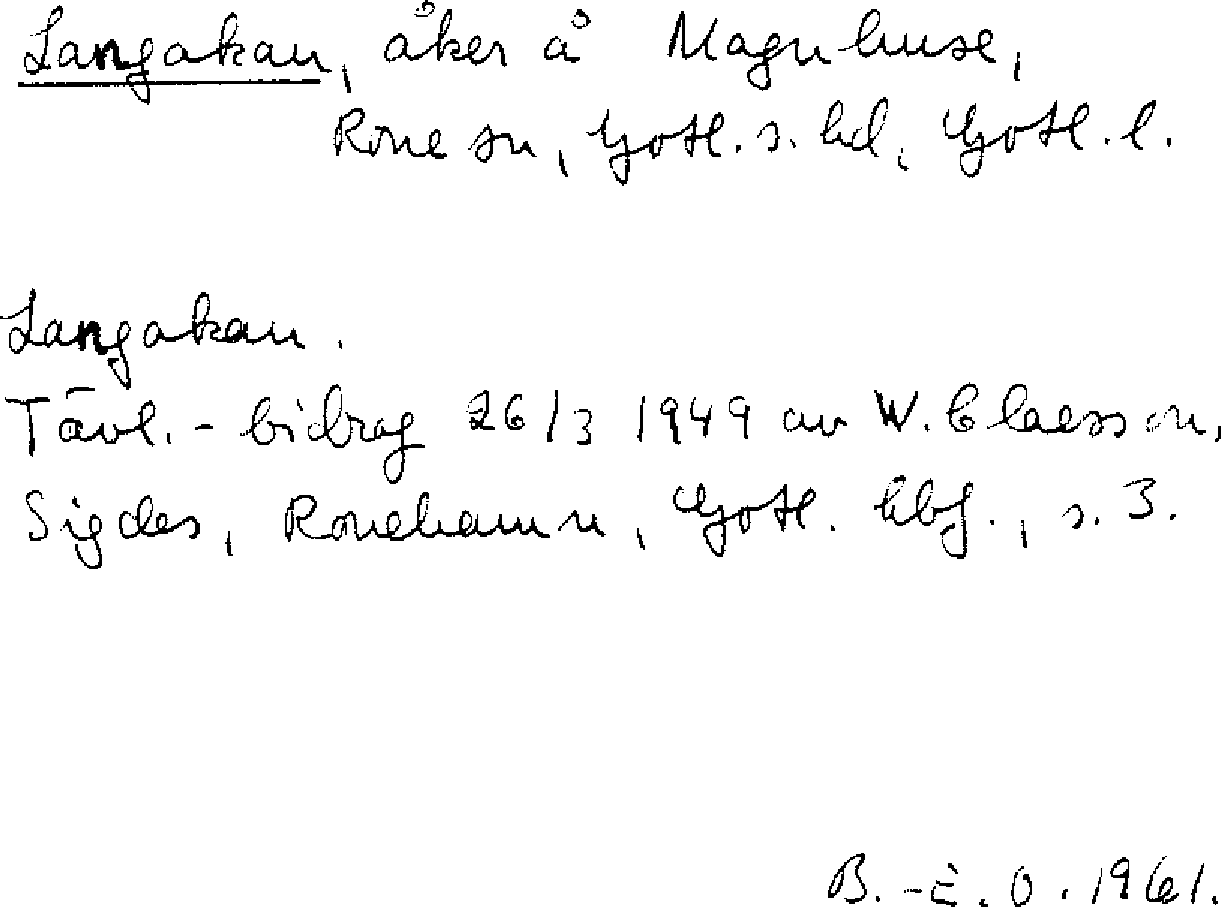 Langakau, åker å Magnhuse,
Rone sn, Gotl. s. hd, Gotl. l.
Langakau.
Tävl.-bidrag 26/3 1949 av W. Claesson,
Sigdes, Ronehamn, Gotl. hbf., s. 3.
B.-E. O. 1961.